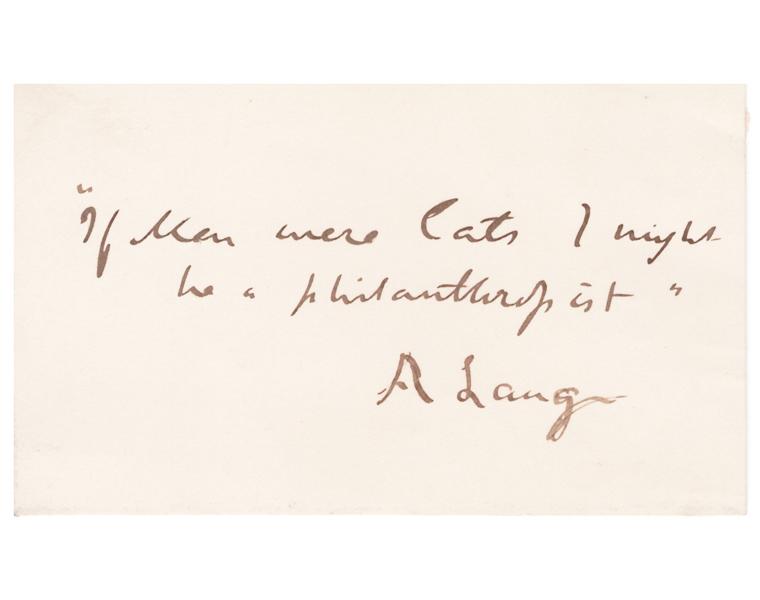 "If Men were Cats I might
be a philanthropist"
A Lang